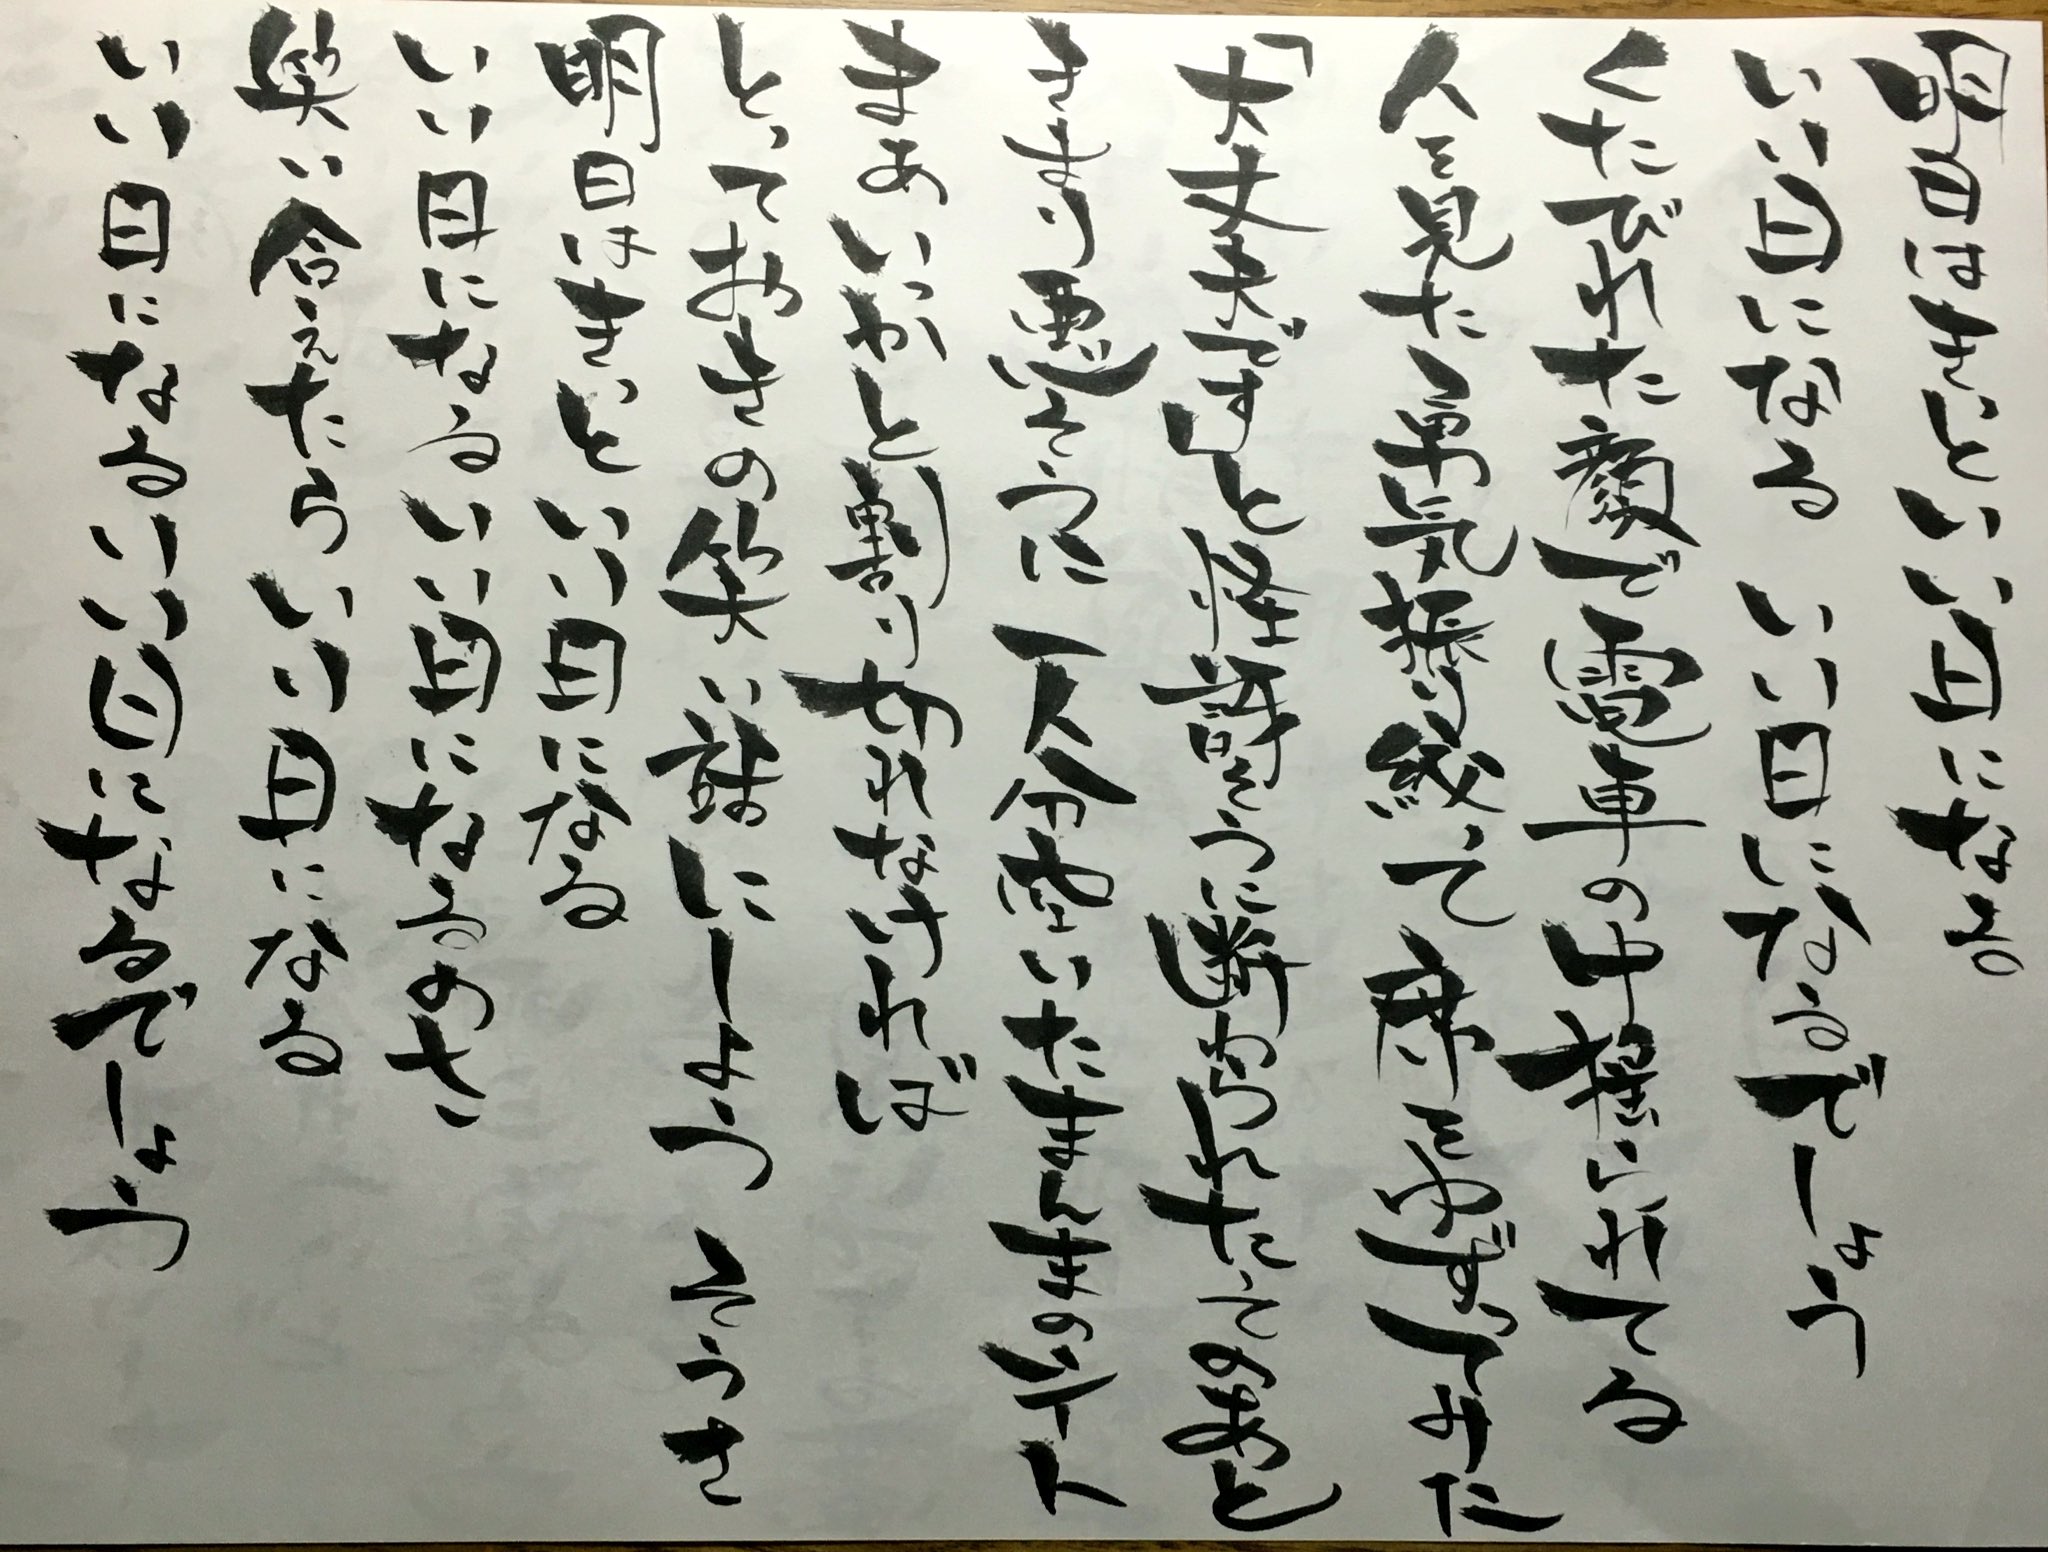 明日はきっといい日になる
いい日になる いい日になるでしょう
くたびれた顔で電車の中揺られてる
人を見た 勇気振り絞って席をゆずってみた
「大丈夫です」と怪訝そうに断わられたそのあと
きまり悪そうに一人分空いたまんまのシート
まあいっかと割り切れなければ
とっておきの笑い話にしよう そうさ
明日はきっといい日になる
いい日になるいい日になるのさ
笑い合えたらいい日になる
いい日になるいい日になるでしょう